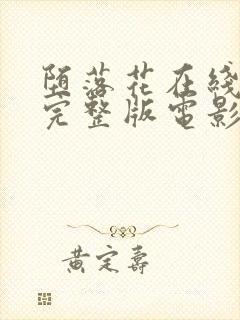 堕落花在线
完整版電影
黄定壽